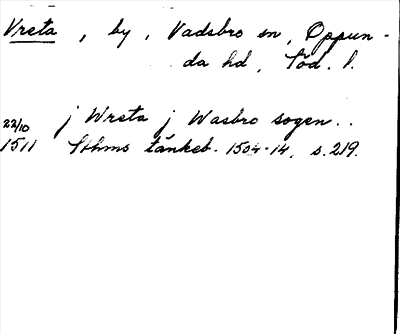 Vreta, by, Vadsbro sn, Oppun-
da hd, Söd. l.
22/10 j Wreta j Wasbro sogen..
1511 Sthms tänkeb. 1504-14, s. 219.